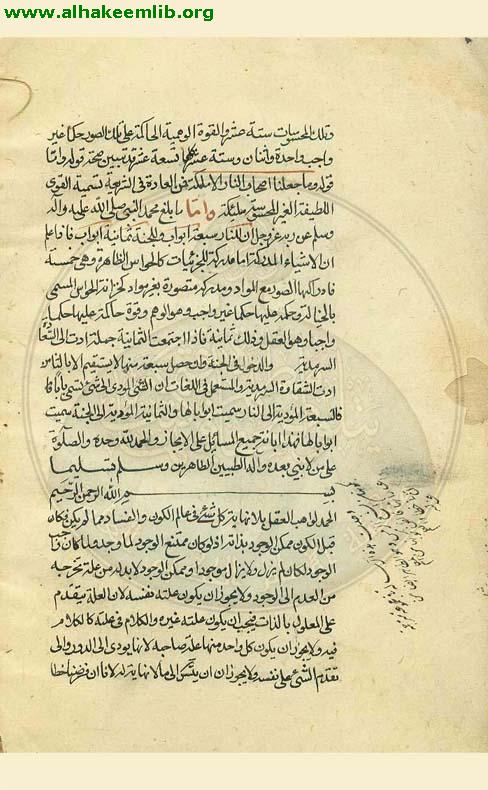 www.alhakeemlib.org
وتلك المحسوسات ستة عشر والقوة الوهمية الحاكمة على تلك الصور حكما غير
واجب واحدة واثنان وستة عشر كلها تسعة عشر قد تبين صحة قوله واما
قوله وما جعلنا اصحاب النار الا ملئكة فمن العادة في الشريعة تسمية القوى
اللطيفة الغير المحسوسة ملئكة واما ما بلغ محمد النبي صلى الله عليه واله
وسلم عن ربه عز وجل ان للنار سبعة ابواب وللجنة ثمانية ابواب فاذا علم
ان الاشياء المدركة اما مدركة للجزئيات كالحواس الظاهرة وهي خمسة
فادراكها الصور مع المواد ومدركة متصورة بغير مواد كخزانة الحواس المسمى
بالخيال وقوة حاكمة عليها حكما غير واجب وهو الوهم وقوة حاكمة عليها حكما
واجبا وهو العقل وذلك ثمانية فاذا اجتمعت الثمانية جملة ادت الى السعادة
السرمدية والدخول في الجنة وان حصل سبعة منها لا يستقيم الا بالثامن
ادت الشقاوة السرمدية والمستعمل في اللغات ان الشئ المؤدي الى الشئ يسمى بابا له
فالسبعة المؤدية الى النار سميت ابوابا لها والثمانية المؤدية الى الجنة سميت
ابوابا لها فهذا ابانة جميع المسائل على الايجاز والحمد لله وحده والصلوة
على من لا نبي بعده واله الطيبين الطاهرين وسلم تسليما
بسم الله الرحمن الرحيم
الحمد لواهب العقل بلا نهاية كل شئ في عالم الكون والفساد مما لم يكن فكان
قبل الكون ممكن الوجود بذاته اذ لو كان ممتنع الوجود لما وجد ولو كان واجب
الوجود لكان لم يزل ولا يزال موجودا وممكن الوجود لا بد له من علة تخرجه
من العدم الى الوجود ولا يجوز ان يكون علته نفسه لان العلة يتقدم
على المعلول بالذات فيجب ان يكون علته غيره والكلام في علته كالكلام
فيه ولا يجوز ان يكون كل واحد منها علة صاحبه لانها يودي الى الدور والى
تقدم الشئ على نفسه ولا يجوز ان يتسلسل الى ما لا نهاية له لانا ان فرضنا خطا